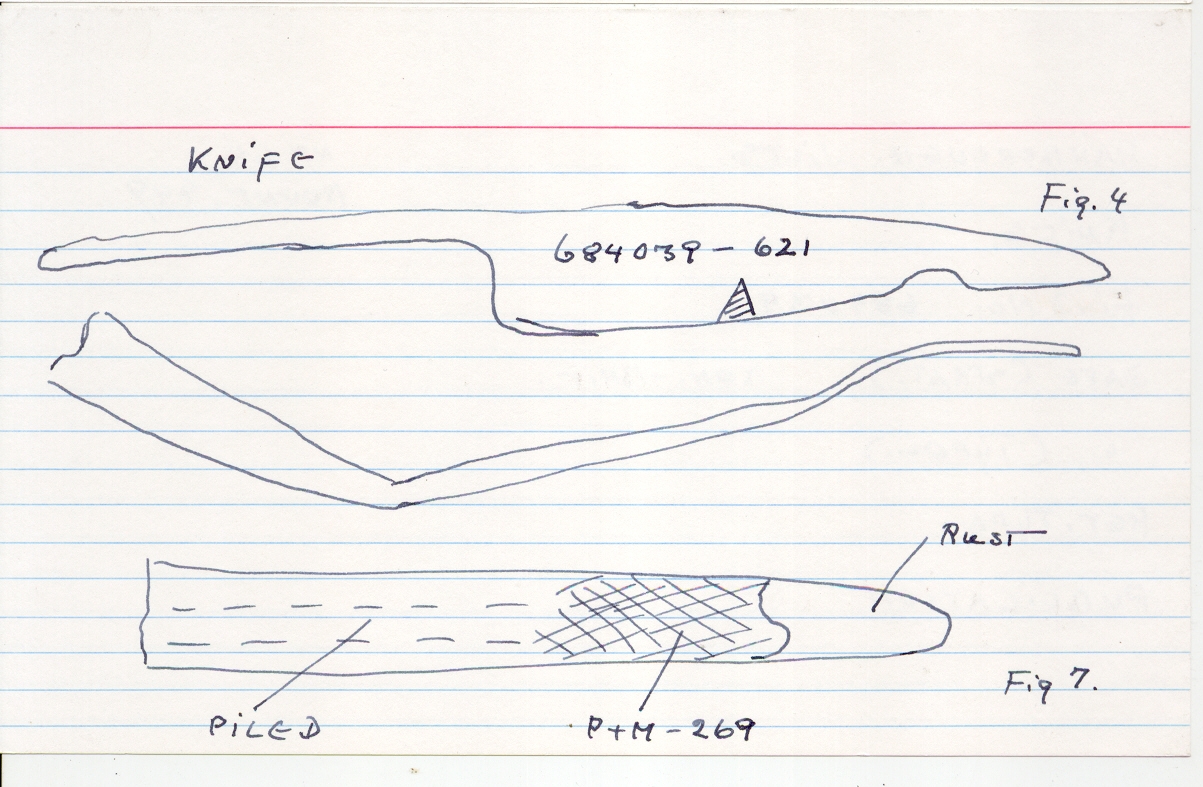 KNiFE
Fig. 4
684039 - 621
Rust
Fig 7.
PiLED
P+M - 269